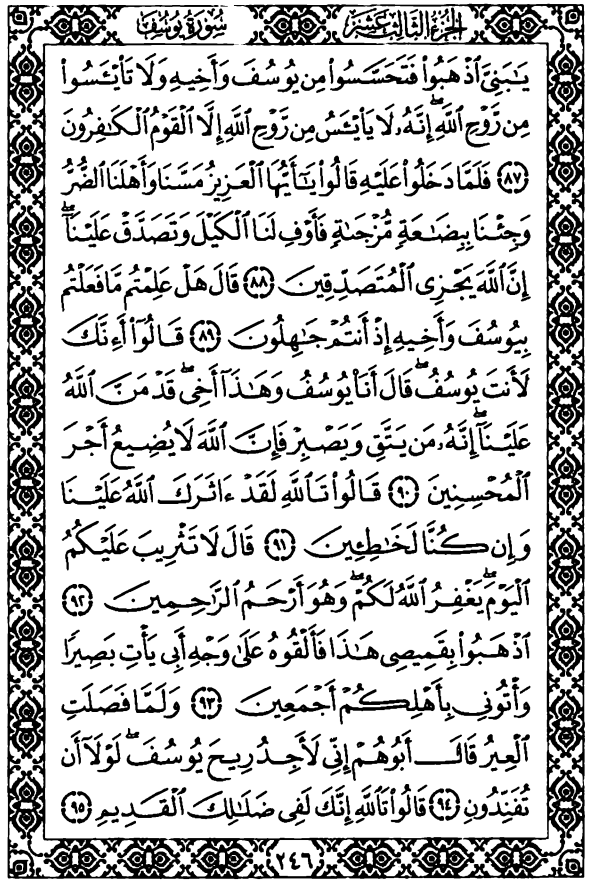 سُورَةُ يُوسُفَ الجُزءُ الثَّالِثَ عَشَرَ
يَٰبَنِيَّ ٱذۡهَبُواْ فَتَحَسَّسُواْ مِن يُوسُفَ وَأَخِيهِ وَلَا تَاْيۡـَٔسُواْ
مِن رَّوۡحِ ٱللَّهِۖ إِنَّهُۥ لَا يَاْيۡـَٔسُ مِن رَّوۡحِ ٱللَّهِ إِلَّا ٱلۡقَوۡمُ ٱلۡكَٰفِرُونَ
٨٧ فَلَمَّا دَخَلُواْ عَلَيۡهِ قَالُواْ يَٰٓأَيُّهَا ٱلۡعَزِيزُ مَسَّنَا وَأَهۡلَنَا ٱلضُّرُّ
وَجِئۡنَا بِبِضَٰعَةٖ مُّزۡجَىٰةٖ فَأَوۡفِ لَنَا ٱلۡكَيۡلَ وَتَصَدَّقۡ عَلَيۡنَآۖ
إِنَّ ٱللَّهَ يَجۡزِي ٱلۡمُتَصَدِّقِينَ ٨٨ قَالَ هَلۡ عَلِمۡتُم مَّا فَعَلۡتُم
بِيُوسُفَ وَأَخِيهِ إِذۡ أَنتُمۡ جَٰهِلُونَ ٨٩ قَالُوٓاْ أَءِنَّكَ
لَأَنتَ يُوسُفُۖ قَالَ أَنَا۠ يُوسُفُ وَهَٰذَآ أَخِيۖ قَدۡ مَنَّ ٱللَّهُ
عَلَيۡنَآۖ إِنَّهُۥ مَن يَتَّقِ وَيَصۡبِرۡ فَإِنَّ ٱللَّهَ لَا يُضِيعُ أَجۡرَ
ٱلۡمُحۡسِنِينَ ٩٠ قَالُواْ تَٱللَّهِ لَقَدۡ ءَاثَرَكَ ٱللَّهُ عَلَيۡنَا
وَإِن كُنَّا لَخَٰطِـِٔينَ ٩١ قَالَ لَا تَثۡرِيبَ عَلَيۡكُمُ
ٱلۡيَوۡمَۖ يَغۡفِرُ ٱللَّهُ لَكُمۡۖ وَهُوَ أَرۡحَمُ ٱلرَّٰحِمِينَ ٩٢
ٱذۡهَبُواْ بِقَمِيصِي هَٰذَا فَأَلۡقُوهُ عَلَىٰ وَجۡهِ أَبِي يَأۡتِ بَصِيرٗا
وَأۡتُونِي بِأَهۡلِكُمۡ أَجۡمَعِينَ ٩٣ وَلَمَّا فَصَلَتِ
ٱلۡعِيرُ قَالَ أَبُوهُمۡ إِنِّي لَأَجِدُ رِيحَ يُوسُفَۖ لَوۡلَآ أَن
تُفَنِّدُونِ ٩٤ قَالُواْ تَٱللَّهِ إِنَّكَ لَفِي ضَلَٰلِكَ ٱلۡقَدِيمِ ٩٥
٢٤٦